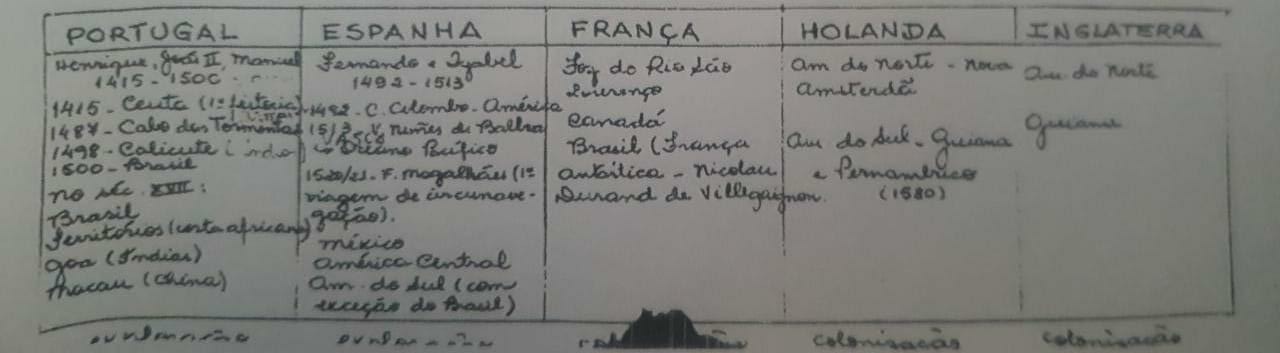 PORTUGAL
Henrique, João II, Manuel
1415 - 1500
1415 - Ceuta (1ª feitoria)
1487 - Cabo das Tormentas
1498 - Calicute (índia)
1500 - Brasil
no séc. XVII:
Brasil
Territórios (costa africana)
Goa (Índias)
Macau (China)
ESPANHA
Fernando e Isabel
1492 - 1513
1492 - C. Colombo - América
1513 - V. Nunes de Balboa
↳ Oceano Pacífico
F. Magalhães (1ª
viagem de circunave-
gação).
México
América Central
Am. do Sul (com
exceção do Brasil)
FRANÇA
Foz do Rio São
Lourenço
Canadá
Brasil (França
antártica - Nicolau
Durand de Villegaignon.
HOLANDA
Am do norte - nova
Amsterdã
Am do Sul - Guiana
e Pernambuco
(1580)
colonisação
INGLATERRA
Am. do norte
Guiana
colonisação